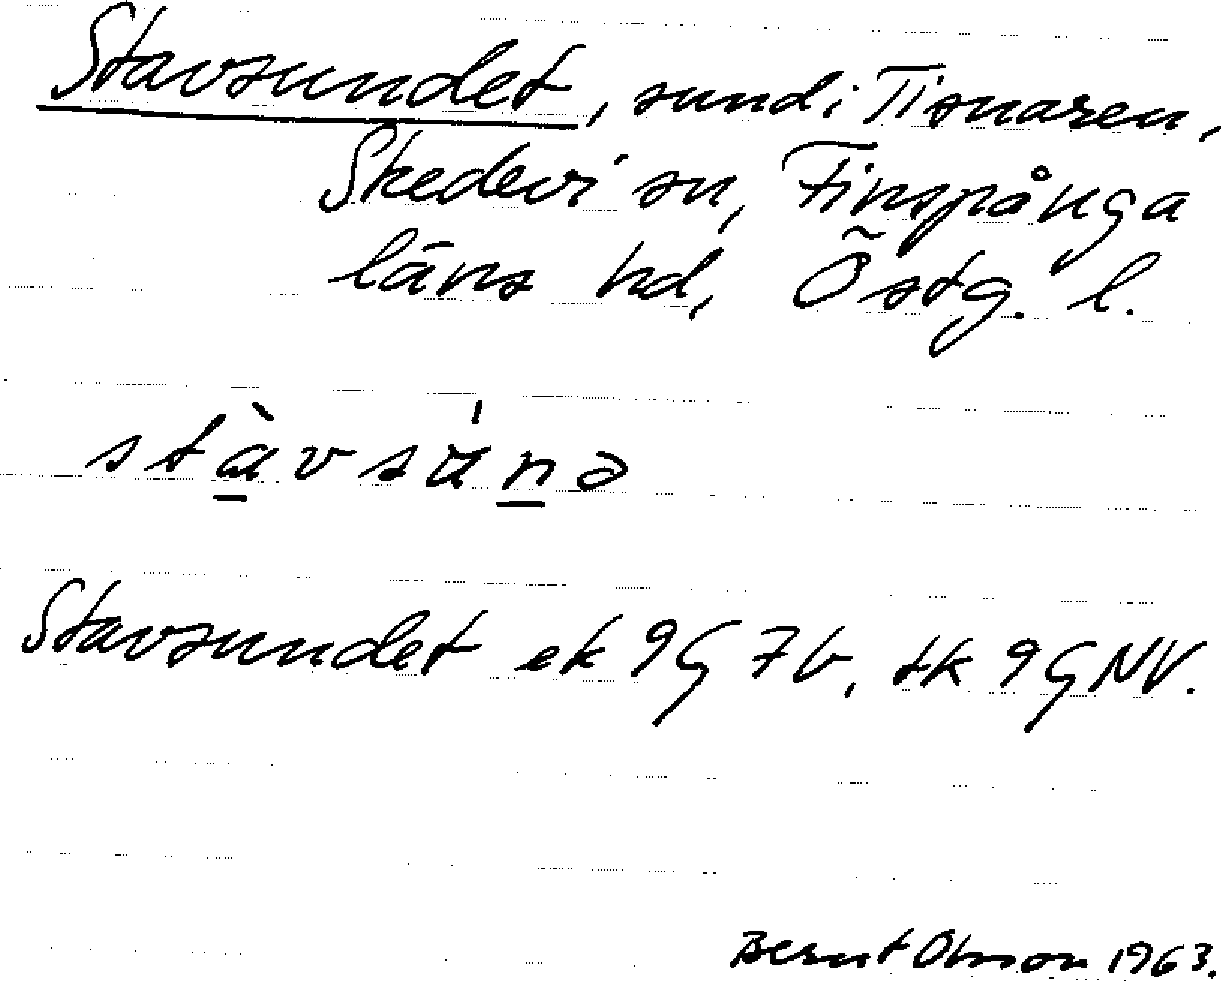 Stavsundet, sund i Tisnaren,
Skedevi sn, Finspånga
läns hd, Östg. l.
stàvsu̇nə
Stavsundet ek 9G 7b, tk 9GNV.
Bernt Olsson 1963.